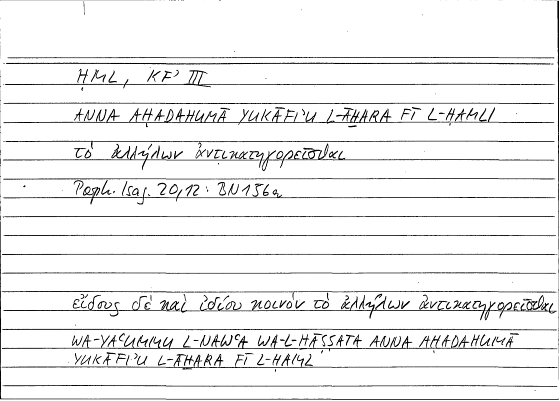 ḤML, KFʾ III
ANNA AḤADAHUMĀ YUKĀFIʾU L-ĀḪARA FĪ L-ḤAMLI
τὸ ἀλλήλων ἀντικατηγορεῖσθαι
Porph. Isag. 20,12 : BN 156a
εἴδους δὲ καὶ ἰδίου κοινὸν τὸ ἀλλήλων ἀντικατηγορεῖσθαι
WA-YAʿUMMU L-NAWʿA WA-L-ḪĀṢṢATA ANNA AḤADAHUMĀ
YUKĀFIʾU L-ĀḪARA FĪ L-ḤAML